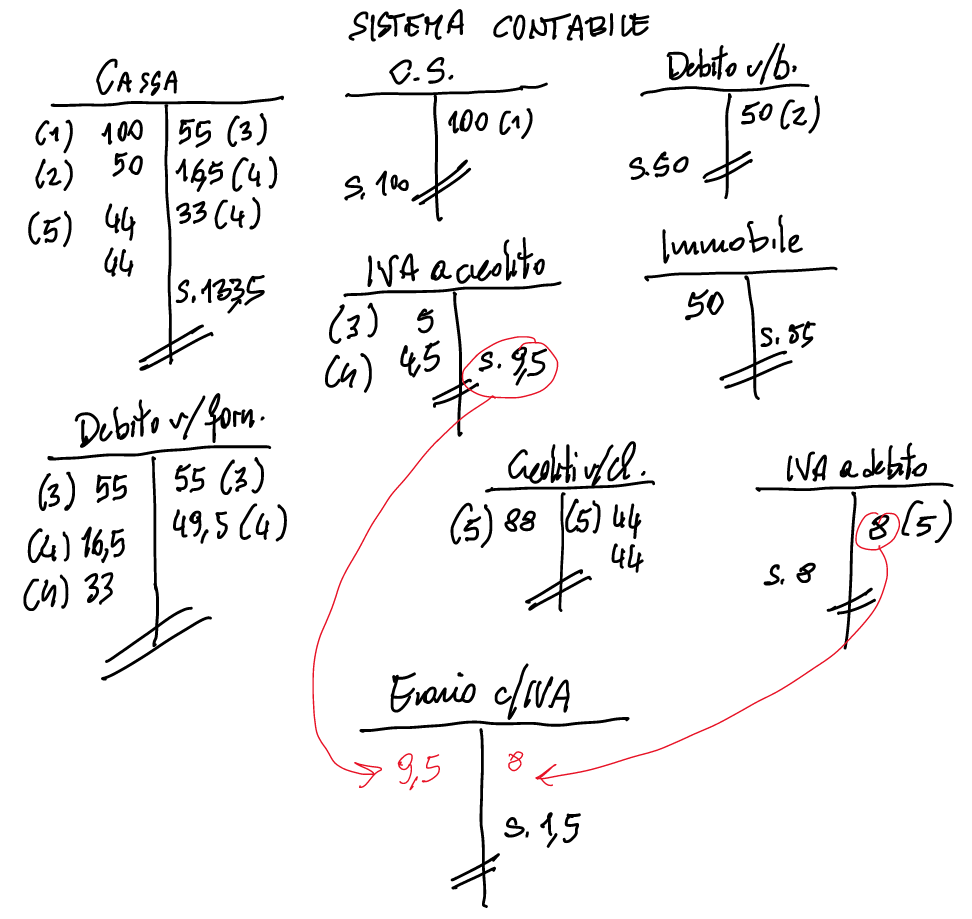 SISTEMA CONTABILE
CASSA
(1) 100 55 (3)
(2) 50 16,5 (4)
(5) 44 33 (4)
44
S. 133,5
C.S.
100 (1)
S. 100
Debito v/b.
50 (2)
S. 50
IVA a credito
(3) 5
(4) 4,5 S. 9,5
Immobile
50
S. 55
Debito v/ forn.
(3) 55 55 (3)
(4) 16,5 49,5 (4)
(4) 33
Crediti v/cl.
(5) 88 (5) 44
44
IVA a debito
8 (5)
S. 8
Erario c/IVA
9,5 8
S. 1,5